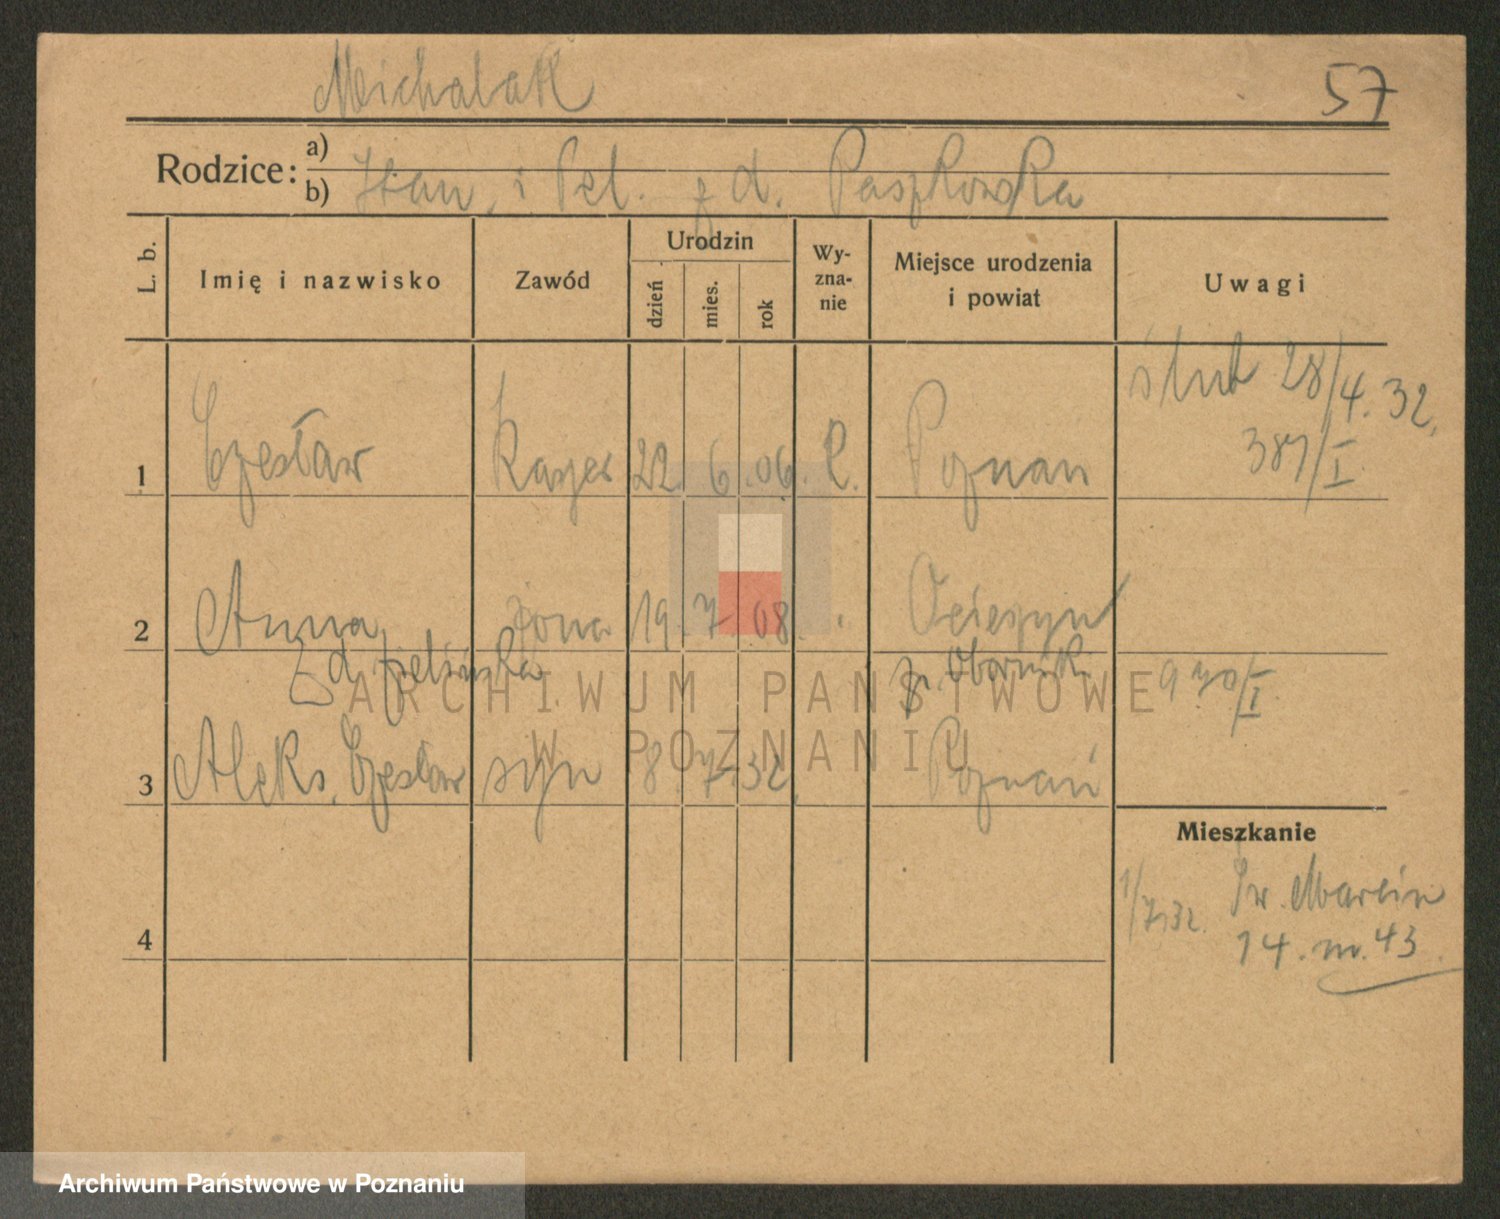 Michalak 57
Rodzice: a)
b) Stan. i Pel. z d. Paszkowska
L. b. Imię i nazwisko Zawód Urodzin dzień mies. rok Wy-zna-nie Miejsce urodzenia i powiat Uwagi
ślub 28/4. 32.
1 Czesław 22. 6. 06. Poznań 387/I
2 Anna żona 19. 7. 08. "
p. Oborniki
3 Aleks. Czesław syn 8. 7. 32. Poznań
Mieszkanie
1/7.32. Św. Marcin
14. m. 43.
4
ARCHIWUM PAŃSTWOWE
W POZNANIU
Archiwum Państwowe w Poznaniu